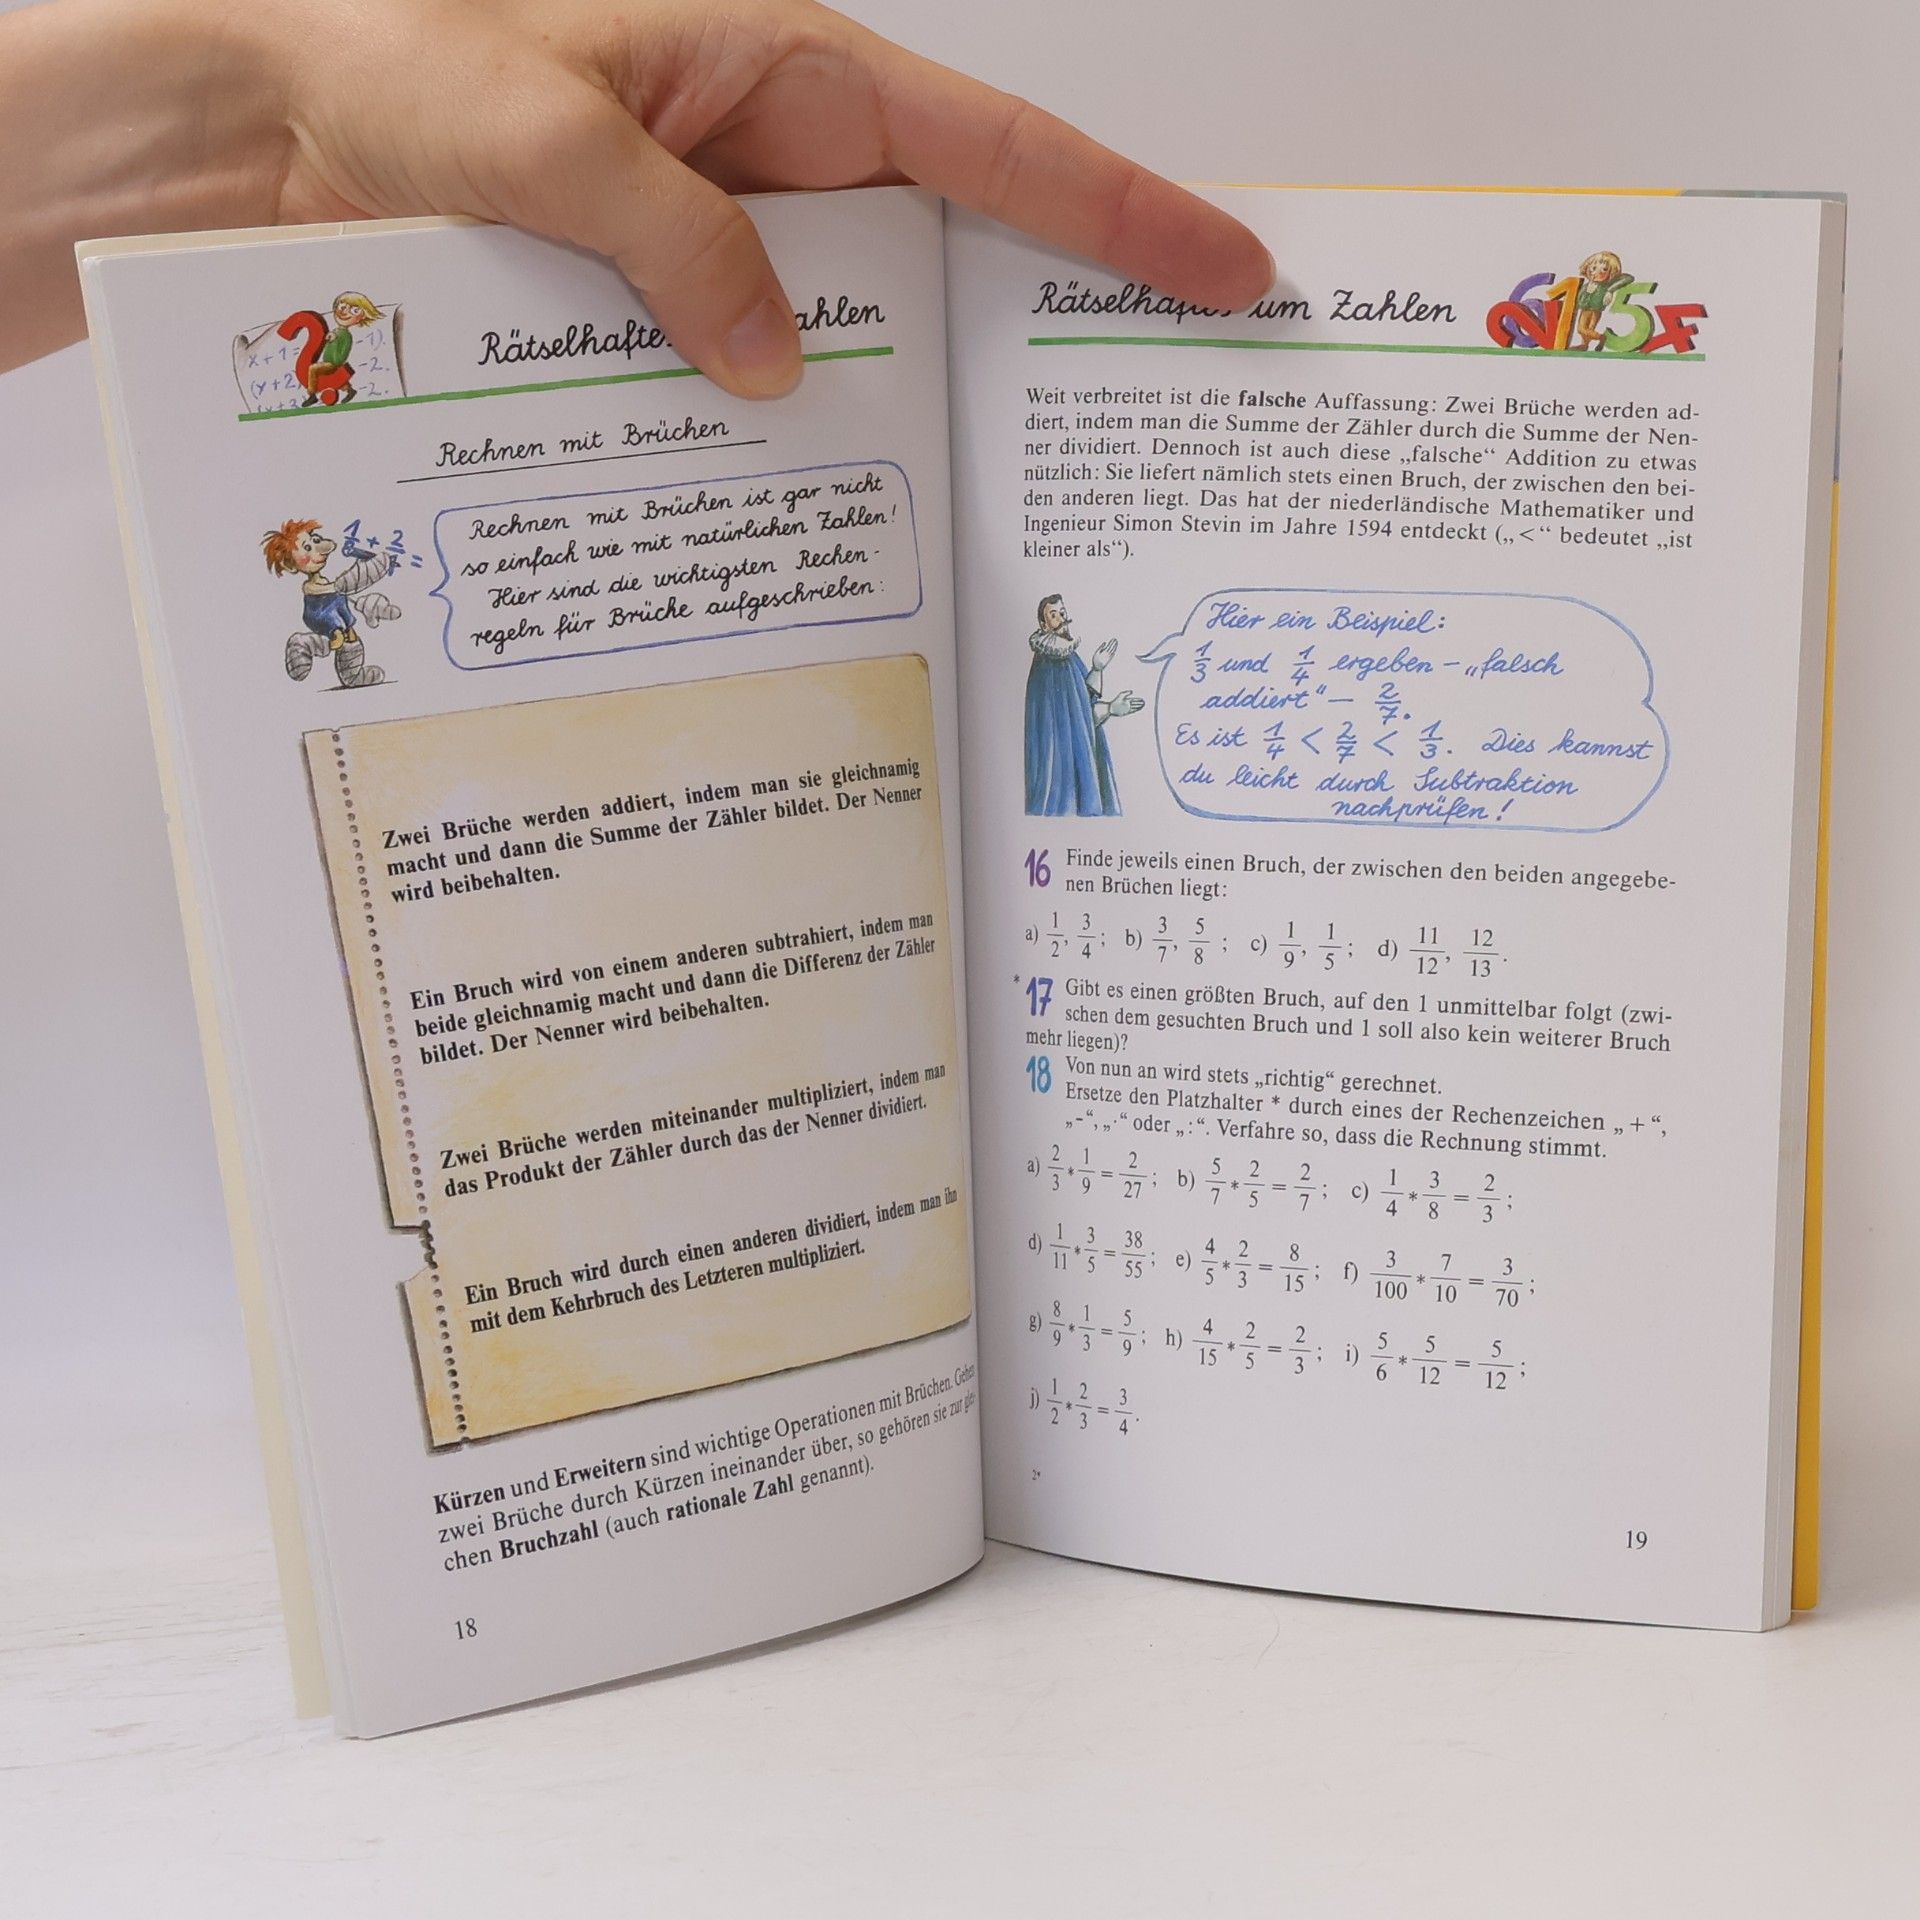 Rätselhafte
ahlen
x+1=
-1).
(y+2)
-2.
-2.
Rechnen mit Brüchen
Rechnen mit Brüchen ist gar nicht
so einfach wie mit natürlichen Zahlen!
Hier sind die wichtigsten Rechen-
regeln für Brüche aufgeschrieben:
Zwei Brüche werden addiert, indem man sie gleichnamig
macht und dann die Summe der Zähler bildet. Der Nenner
wird beibehalten.
Ein Bruch wird von einem anderen subtrahiert, indem man
beide gleichnamig macht und dann die Differenz der Zähler
bildet. Der Nenner wird beibehalten.
Zwei Brüche werden miteinander multipliziert, indem man
das Produkt der Zähler durch das der Nenner dividiert.
Ein Bruch wird durch einen anderen dividiert, indem man ihn
mit dem Kehrbruch des Letzteren multipliziert.
Kürzen und Erweitern sind wichtige Operationen mit Brüchen. Gehen
zwei Brüche durch Kürzen ineinander über, so gehören sie zur glei-
chen Bruchzahl (auch rationale Zahl genannt).
18
um Zahlen
Weit verbreitet ist die falsche Auffassung: Zwei Brüche werden ad-
diert, indem man die Summe der Zähler durch die Summe der Nen-
ner dividiert. Dennoch ist auch diese „falsche“ Addition zu etwas
nützlich: Sie liefert nämlich stets einen Bruch, der zwischen den bei-
den anderen liegt. Das hat der niederländische Mathematiker und
Ingenieur Simon Stevin im Jahre 1594 entdeckt („<“ bedeutet „ist
kleiner als“).
Hier ein Beispiel:
1/3 und 1/4 ergeben – „falsch
addiert“ – 2/7.
Es ist 1/4 < 2/7 < 1/3. Dies kannst
du leicht durch Subtraktion
nachprüfen!
16 Finde jeweils einen Bruch, der zwischen den beiden angegebe-
nen Brüchen liegt:
a) 1/2, 3/4; b) 3/7, 5/8; c) 1/9, 1/5; d) 11/12, 12/13.
*17 Gibt es einen größten Bruch, auf den 1 unmittelbar folgt (zwi-
schen dem gesuchten Bruch und 1 soll also kein weiterer Bruch
mehr liegen)?
18 Von nun an wird stets „richtig“ gerechnet.
Ersetze den Platzhalter * durch eines der Rechenzeichen „+“,
„-“, „·“ oder „:“. Verfahre so, dass die Rechnung stimmt.
a) 2/3 * 1/9 = 2/27; b) 5/7 * 2/5 = 2/7; c) 1/4 * 3/8 = 2/3;
d) 1/11 * 3/5 = 38/55; e) 4/5 * 2/3 = 8/15; f) 3/100 * 7/10 = 3/70;
g) 8/9 * 1/3 = 5/9; h) 4/15 * 2/5 = 2/3; i) 5/6 * 5/12 = 5/12;
j) 1/2 * 2/3 = 3/4.
2*
19